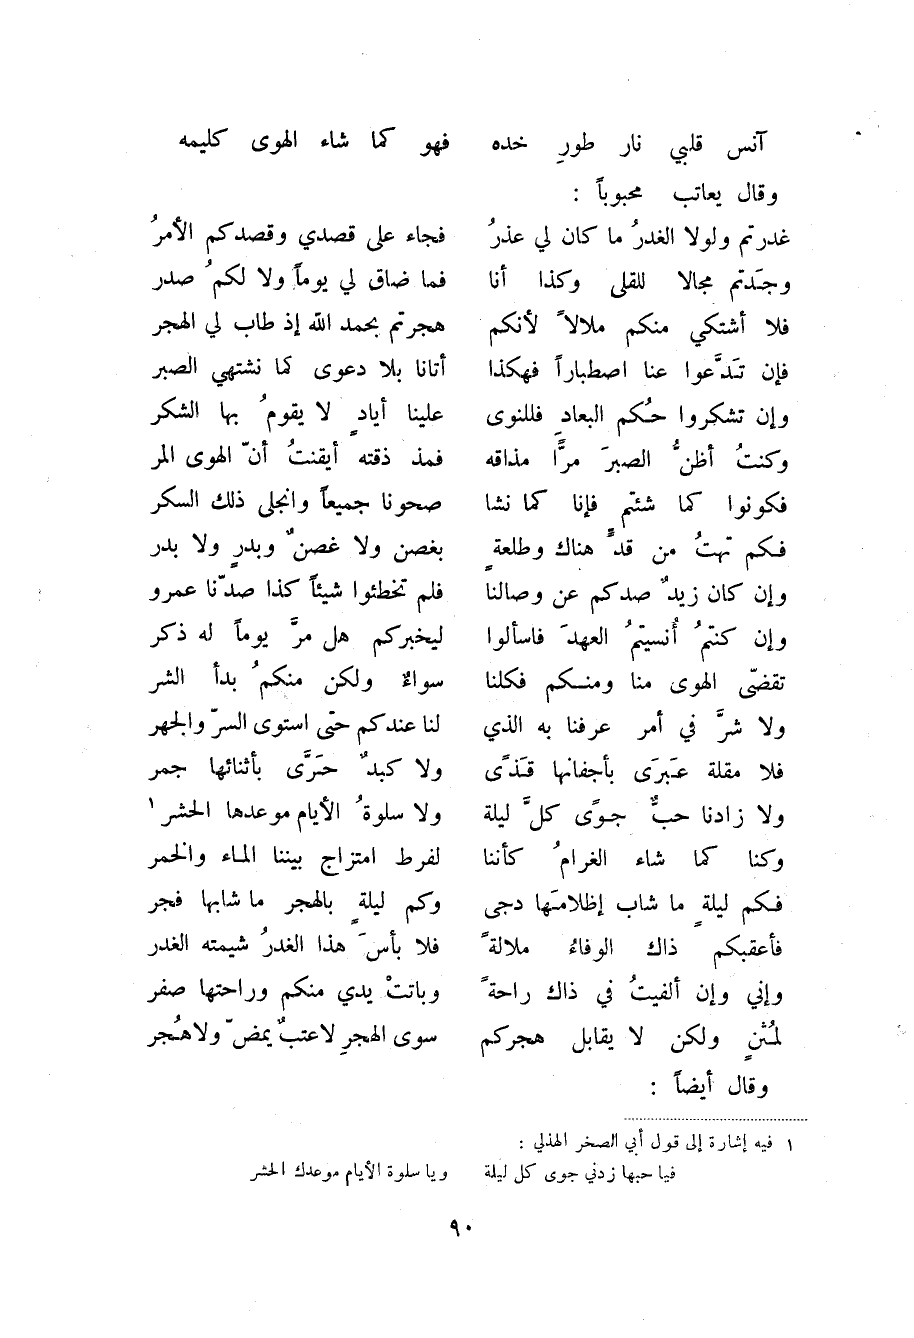 آنس قلبي نار طورِ خده فهو كما شاء الهوى كليمه
وقال يعاتب محبوباً :
غدرتم ولولا الغدرُ ما كان لي عذرُ فجاء على قصدي وقصدكم الأمرُ
وجَدتم مجالا للقلى وكذا أنا فما ضاق لي يوماً ولا لكمُ صدر
فلا أشتكي منكم ملالاً لأنكم هجرتم بحمد الله إذ طاب لي الهجر
فإن تَدَّعوا عنا اصطباراً فهكذا أتانا بلا دعوى كما نشتهي الصبر
وإن تشكروا حُكم البعادِ فللنوى علينا أيادٍ لا يقومُ بها الشكر
وكنتُ أظنُّ الصبرَ مرًّا مذاقه فمذ ذقته أيقنتُ أنّ الهوى المر
فكونوا كما شئتم فإنا كما نشا صحونا جميعاً وانجلى ذلك السكر
فكم تهتُ من قدٍّ هناك وطلعةٍ بغصن ولا غصنٌ وبدرٍ ولا بدر
وإن كان زيدٌ صدكم عن وصالنا فلم تخطئوا شيئاً كذا صدّنا عمرو
وإن كنتمُ أُنسيتمُ العهدَ فاسألوا ليخبركم هل مرَّ يوماً له ذكر
تقضّى الهوى منا ومنكم فكلنا سواءٌ ولكن منكمُ بدأ الشر
ولا شرَّ في أمر عرفنا به الذي لنا عندكم حتى استوى السرّ والجهر
فلا مقلة عَبرَى بأجفانها قَذًى ولا كبدٌ حَرَّى بأثنائها جمر
ولا زادنا حبٌّ جوًى كلَّ ليلة ولا سلوةُ الأيام موعدها الحشر ١
وكنا كما شاء الغرامُ كأننا لفرط امتزاج بيننا الماء والخمر
فكم ليلةٍ ما شاب إظلامَها دجى وكم ليلةٍ بالهجر ما شابها فجر
فأعقبكم ذاك الوفاءُ ملالةً فلا بأسَ هذا الغدرُ شيمته الغدر
وإني وإن ألفيتُ في ذاك راحةً وباتتْ يدي منكم وراحتها صفر
لمُثْنٍ ولكن لا يقابل هجركم سوى الهجرِ لا عتبٌ يمضّ ولا هُجر
وقال أيضاً :
١ فيه إشارة إلى قول أبي الصخر الهذلي :
فيا حبها زدني جوى كل ليلة ويا سلوة الأيام موعدك الحشر
٩٠